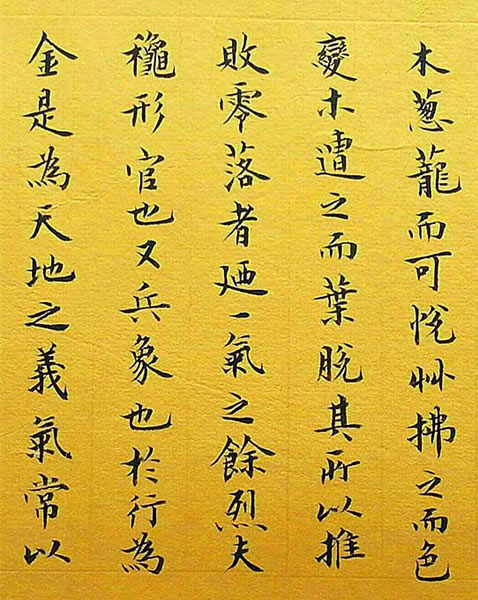 木葱蘢而可悅艸拂之而色
變木遭之而葉脫其所以推
敗零落者廼一氣之餘烈夫
龝形官也又兵象也於行為
金是為天地之義氣常以